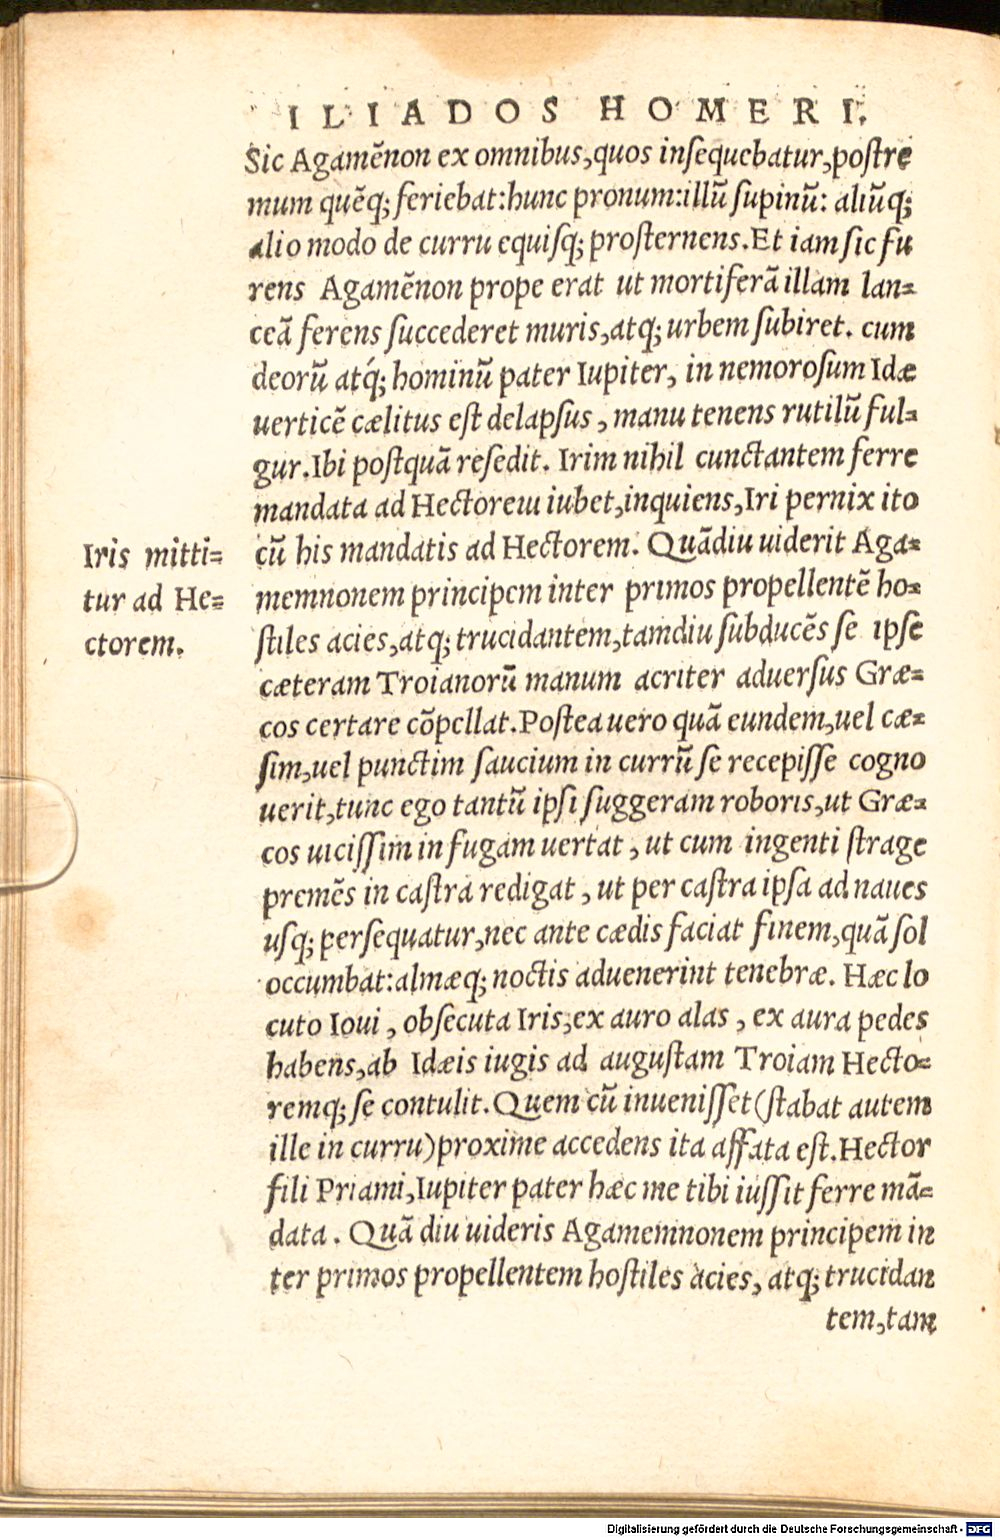 ILIADOS HOMERI.
Sic Agamēnon ex omnibus, quos insequebatur, postre
mum quēq; feriebat: hunc pronum: illū supinū: aliūq;
alio modo de curru equisq; prosternens. Et iam sic fu
rens Agamēnon prope erat ut mortiferā illam lan-
ceā ferens succederet muris, atq; urbem subiret. cum
deorū atq́; hominū pater Iupiter, in nemorosum Idæ
uerticē cælitus est delapsus, manu tenens rutilū ful-
gur. Ibi postquā resedit. Irim nihil cunctantem ferre
mandata ad Hectorem iubet, inquiens, Iri pernix ito
Iris mitti-
tur ad He-
ctorem.
cū his mandatis ad Hectorem. Quādiu uiderit Aga-
memnonem principem inter primos propellentē ho-
stiles acies, atq; trucidantem, tamdiu subducēs se ipse
cæteram Troianorū manum acriter aduersus Græ-
cos certare cōpellat. Postea uero quā eundem, uel cæ-
sim, uel punctim saucium in currū se recepisse cogno
uerit, tunc ego tantū ipsi suggeram roboris, ut Græ-
cos uicissim in fugam uertat, ut cum ingenti strage
premēs in castra redigat, ut per castra ipsa ad naues
usq; persequatur, nec ante cædis faciat finem, quā sol
occumbat: almæq; noctis aduenerint tenebræ. Hæc lo
cuto Ioui, obsecuta Iris, ex auro alas, ex aura pedes
habens, ab Idæis iugis ad augustam Troiam Hecto-
remq; se contulit. Quem cū inuenisset (stabat autem
ille in curru) proxime accedens ita affata est. Hector
fili Priami, Iupiter pater hæc me tibi iussit ferre mā-
data. Quā diu uideris Agamemnonem principem in
ter primos propellentem hostiles acies, atq; trucidan
tem, tam
Digitalisierung gefördert durch die Deutsche Forschungsgemeinschaft - DFG